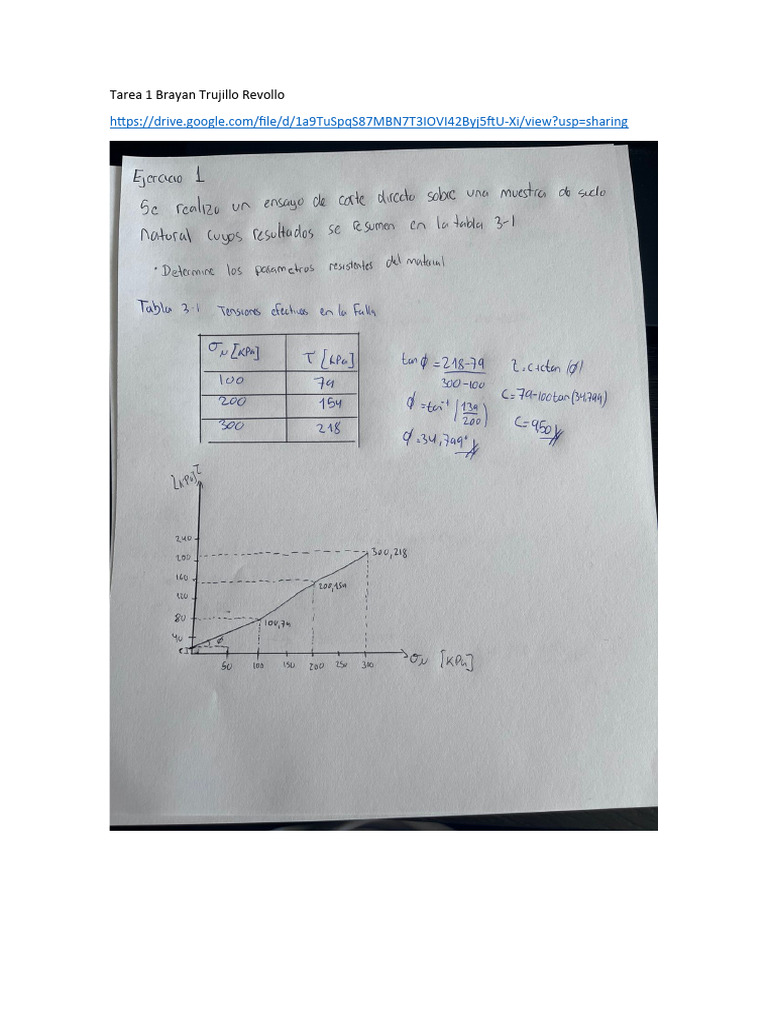 Tarea 1 Brayan Trujillo Revollo
https://drive.google.com/file/d/1a9TuSpqS87MBN7T3IOVI42Byj5ftU-Xi/view?usp=sharing
Ejercicio 1
Se realizo un ensayo de corte directo sobre una muestra de suelo
Natural cuyos resultados se resumen en la tabla 3-1
• Determine los parametros resistentes del material
Tabla 3-1 Tensiones efectivas en la Falla
σN [KPa] τ [KPa]
100 79
200 154
300 218
tan ϕ = 218-79
300-100
ϕ = tan⁻¹ (139
200)
ϕ = 34,799°
τ = c + σ tan (ϕ)
C = 79-100 tan (34.799)
C = 9,50
[KPa] τ
240
200
160
120
80
40
c
ϕ
300, 218
200, 154
100, 79
50 100 150 200 250 300
σN [KPa]